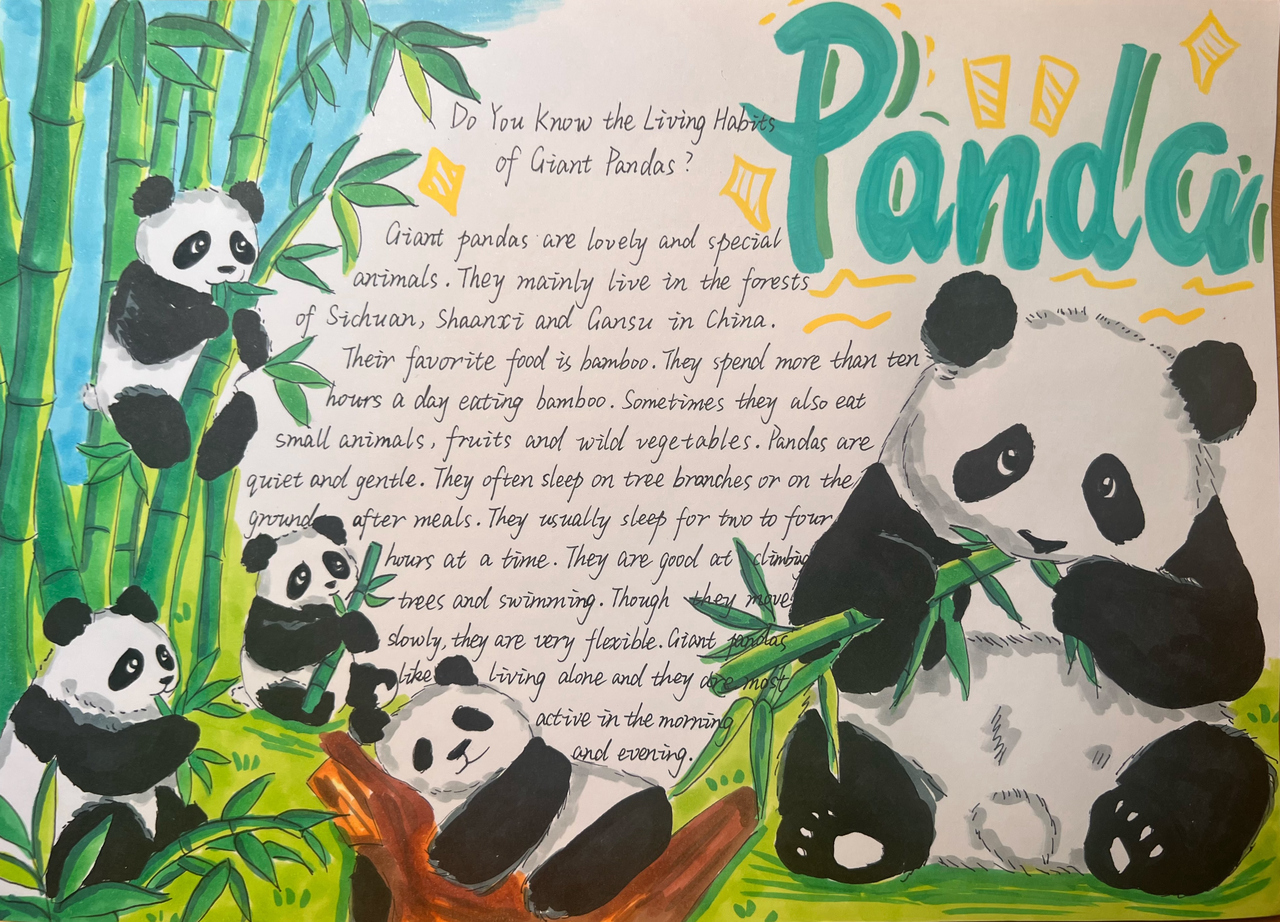 Panda
Do You Know the Living Habits
of Giant Pandas?
Giant pandas are lovely and special
animals. They mainly live in the forests
of Sichuan, Shaanxi and Gansu in China.
Their favorite food is bamboo. They spend more than ten
hours a day eating bamboo. Sometimes they also eat
small animals, fruits and wild vegetables. Pandas are
quiet and gentle. They often sleep on tree branches or on the
ground after meals. They usually sleep for two to four
hours at a time. They are good at climbing
trees and swimming. Though they move
slowly, they are very flexible. Giant pandas
like living alone and they are most
active in the morning
and evening.